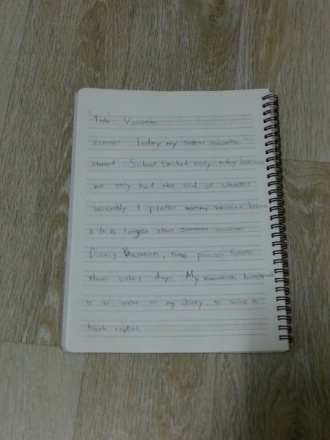 Title: Vacation
Today my vacation
started. School finished early today because
we only had the end of
assembly. I prefer winter vacance because
it is longer than summer vacation
During Vacation, time passes faster
than usual days. My vacation homework
is to write in my diary, to write a
book report.